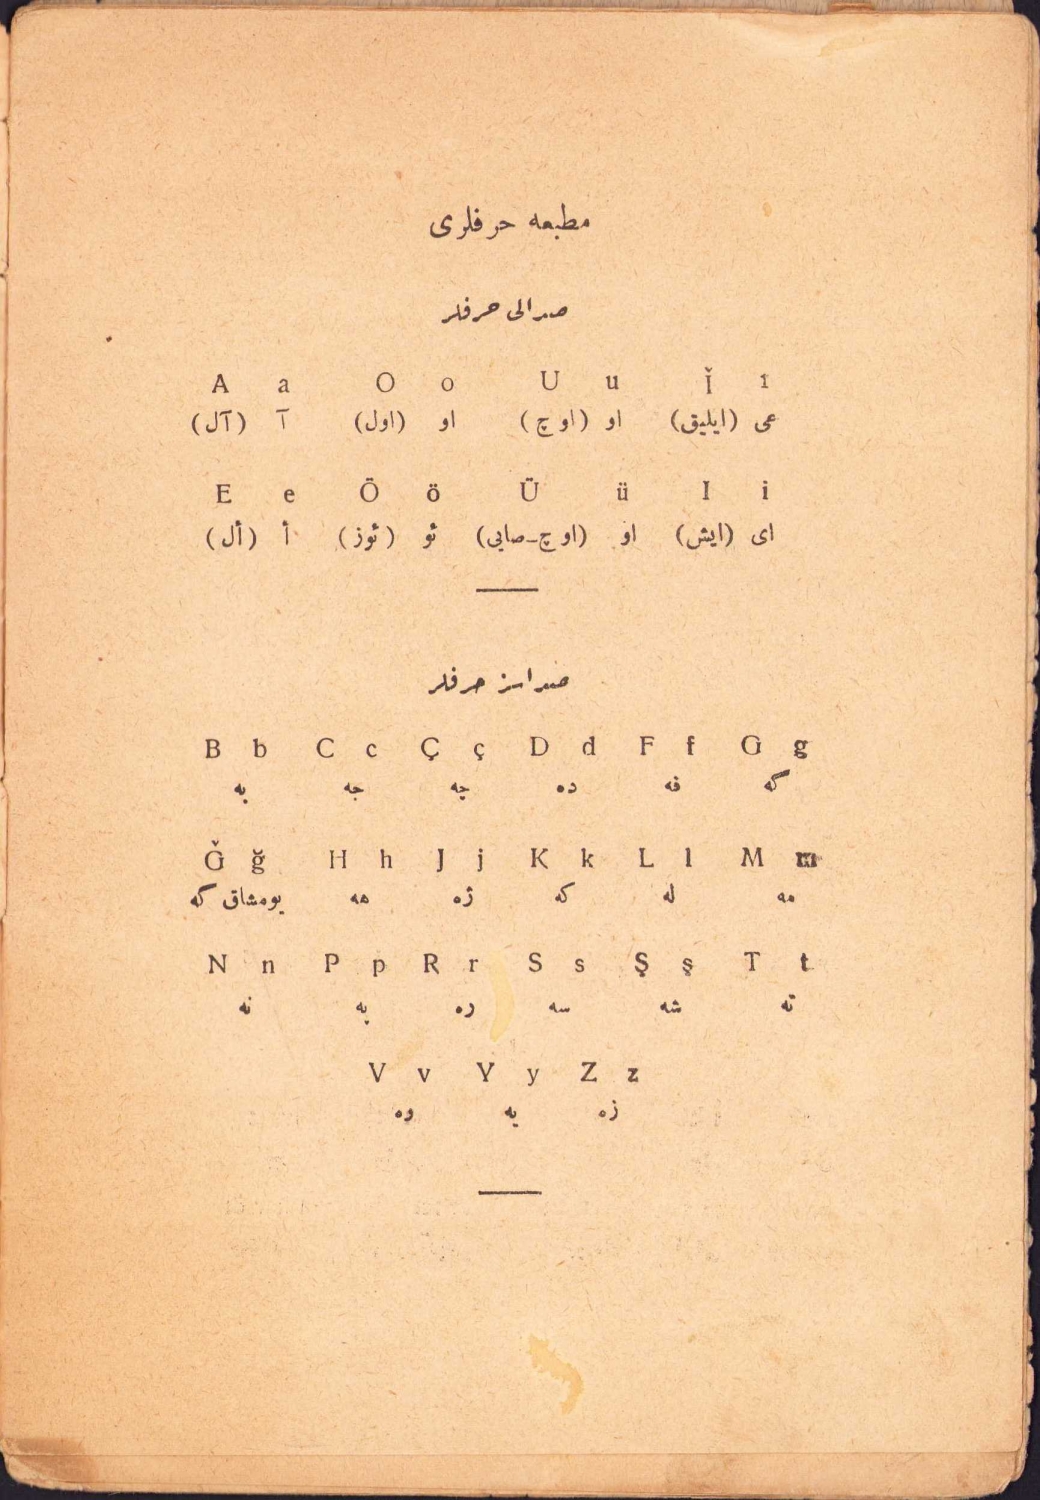 مطبعه حرفلری
صدالی حرفلر
A a O o U u Ǐ ı
(آل) آ (اول) او (اوچ) او (ایلیق) عی
E e Ö ö Ü ü I i
(أل) أ (ئوز) ئو (اوچ-صایی) او (ایش) ای
صداسز حرفلر
B b C c Ç ç D d F f G g
به جه چه ده فه گه
Ǧ ğ H h J j K k L l M m
یومشاق گه هه ژه که له مه
N n P p R r S s Ş ş T t
نه په ره سه شه ته
V v Y y Z z
وه یه زه